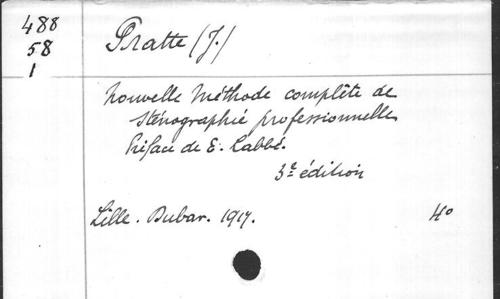 488
58
1
Pratte (J.)
Nouvelle Méthode complète de
sténographie professionnelle
Préface de E. Labbé.
3e édition
Lille. Dubar. 1917.
4o